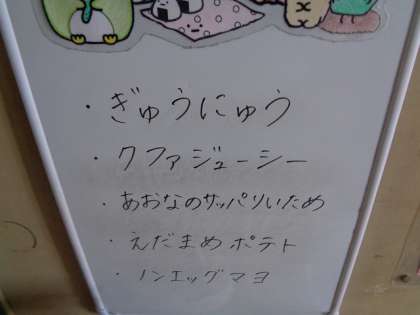 ・ぎゅうにゅう
・クファジューシー
・あおなのサッパリいため
・えだまめポテト
・ノンエッグマヨ